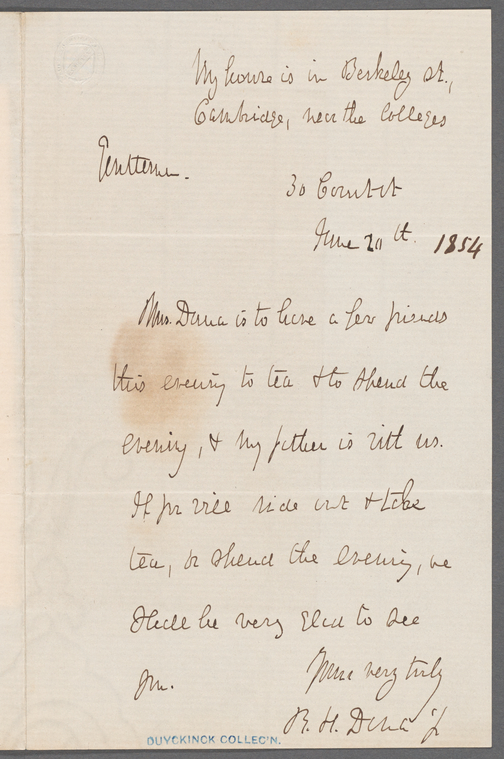 My house is in Berkeley st.,
Cambridge, near the Colleges
Gentlemen.
30 Court st
June 20th. 1854
Mrs. Dana is to have a few friends
this evening to tea & to spend the
evening, & my father is with us.
If you will ride out & take
tea, or spend the evening, we
shall be very glad to see
you.
Yours very truly
R. H. Dana Jr
DUYCKINCK COLLEC'N.